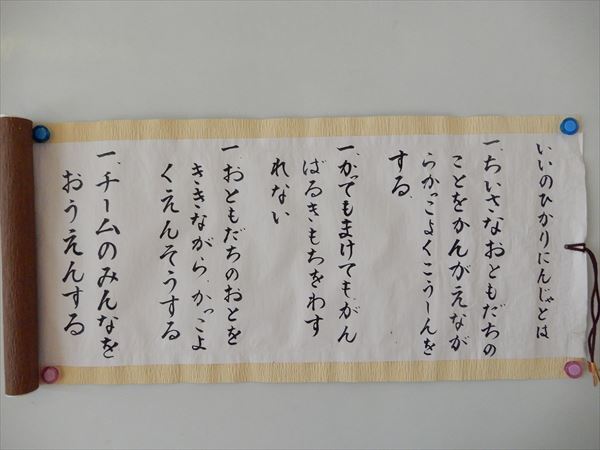 いいのひかりにんじゃとは
一、ちいさなおともだちの
ことをかんがえなが
らかっこよくこうしんを
する。
一、かってもまけてもがん
ばるきもちをわす
れない
一、おともだちのおとを
ききながら、かっこよ
くえんそうする
一、チームのみんなを
おうえんする